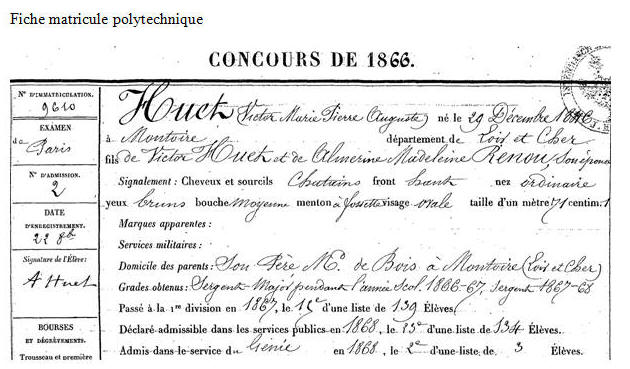 Fiche matricule polytechnique
CONCOURS DE 1866.
N° D'IMMATRICULATION.
9610
EXAMEN
de Paris
N° D'ADMISSION.
2
DATE
D'ENREGISTREMENT.
22 8bre
Signature de l'Élève:
A Huet
BOURSES
ET DÉGRÈVEMENTS.
Trousseau et première
Huet (Victor Marie Pierre Auguste) né le 29 Décembre 1846
à Montoire département de Loir et Cher
fils de Victor Huet et de Almerine Madeleine Renou, son épouse
Signalement: Cheveux et sourcils Chatains front haut nez ordinaire
yeux bruns bouche moyenne menton à fossette visage ovale taille d'un mètre 71 centim.
Marques apparentes:
Services militaires:
Domicile des parents: Son Père Md de Bois à Montoire (Loir et Cher)
Grades obtenus: Sergent Major pendant l'année scol. 1866-67, Sergent 1867-68
Passé à la 1re division en 1867, le d'une liste de 139 Élèves.
Déclaré admissible dans les services publics en 1868, le d'une liste de 134 Élèves.
Admis dans le service du Génie en 1868, le 2e d'une liste de 3 Élèves.